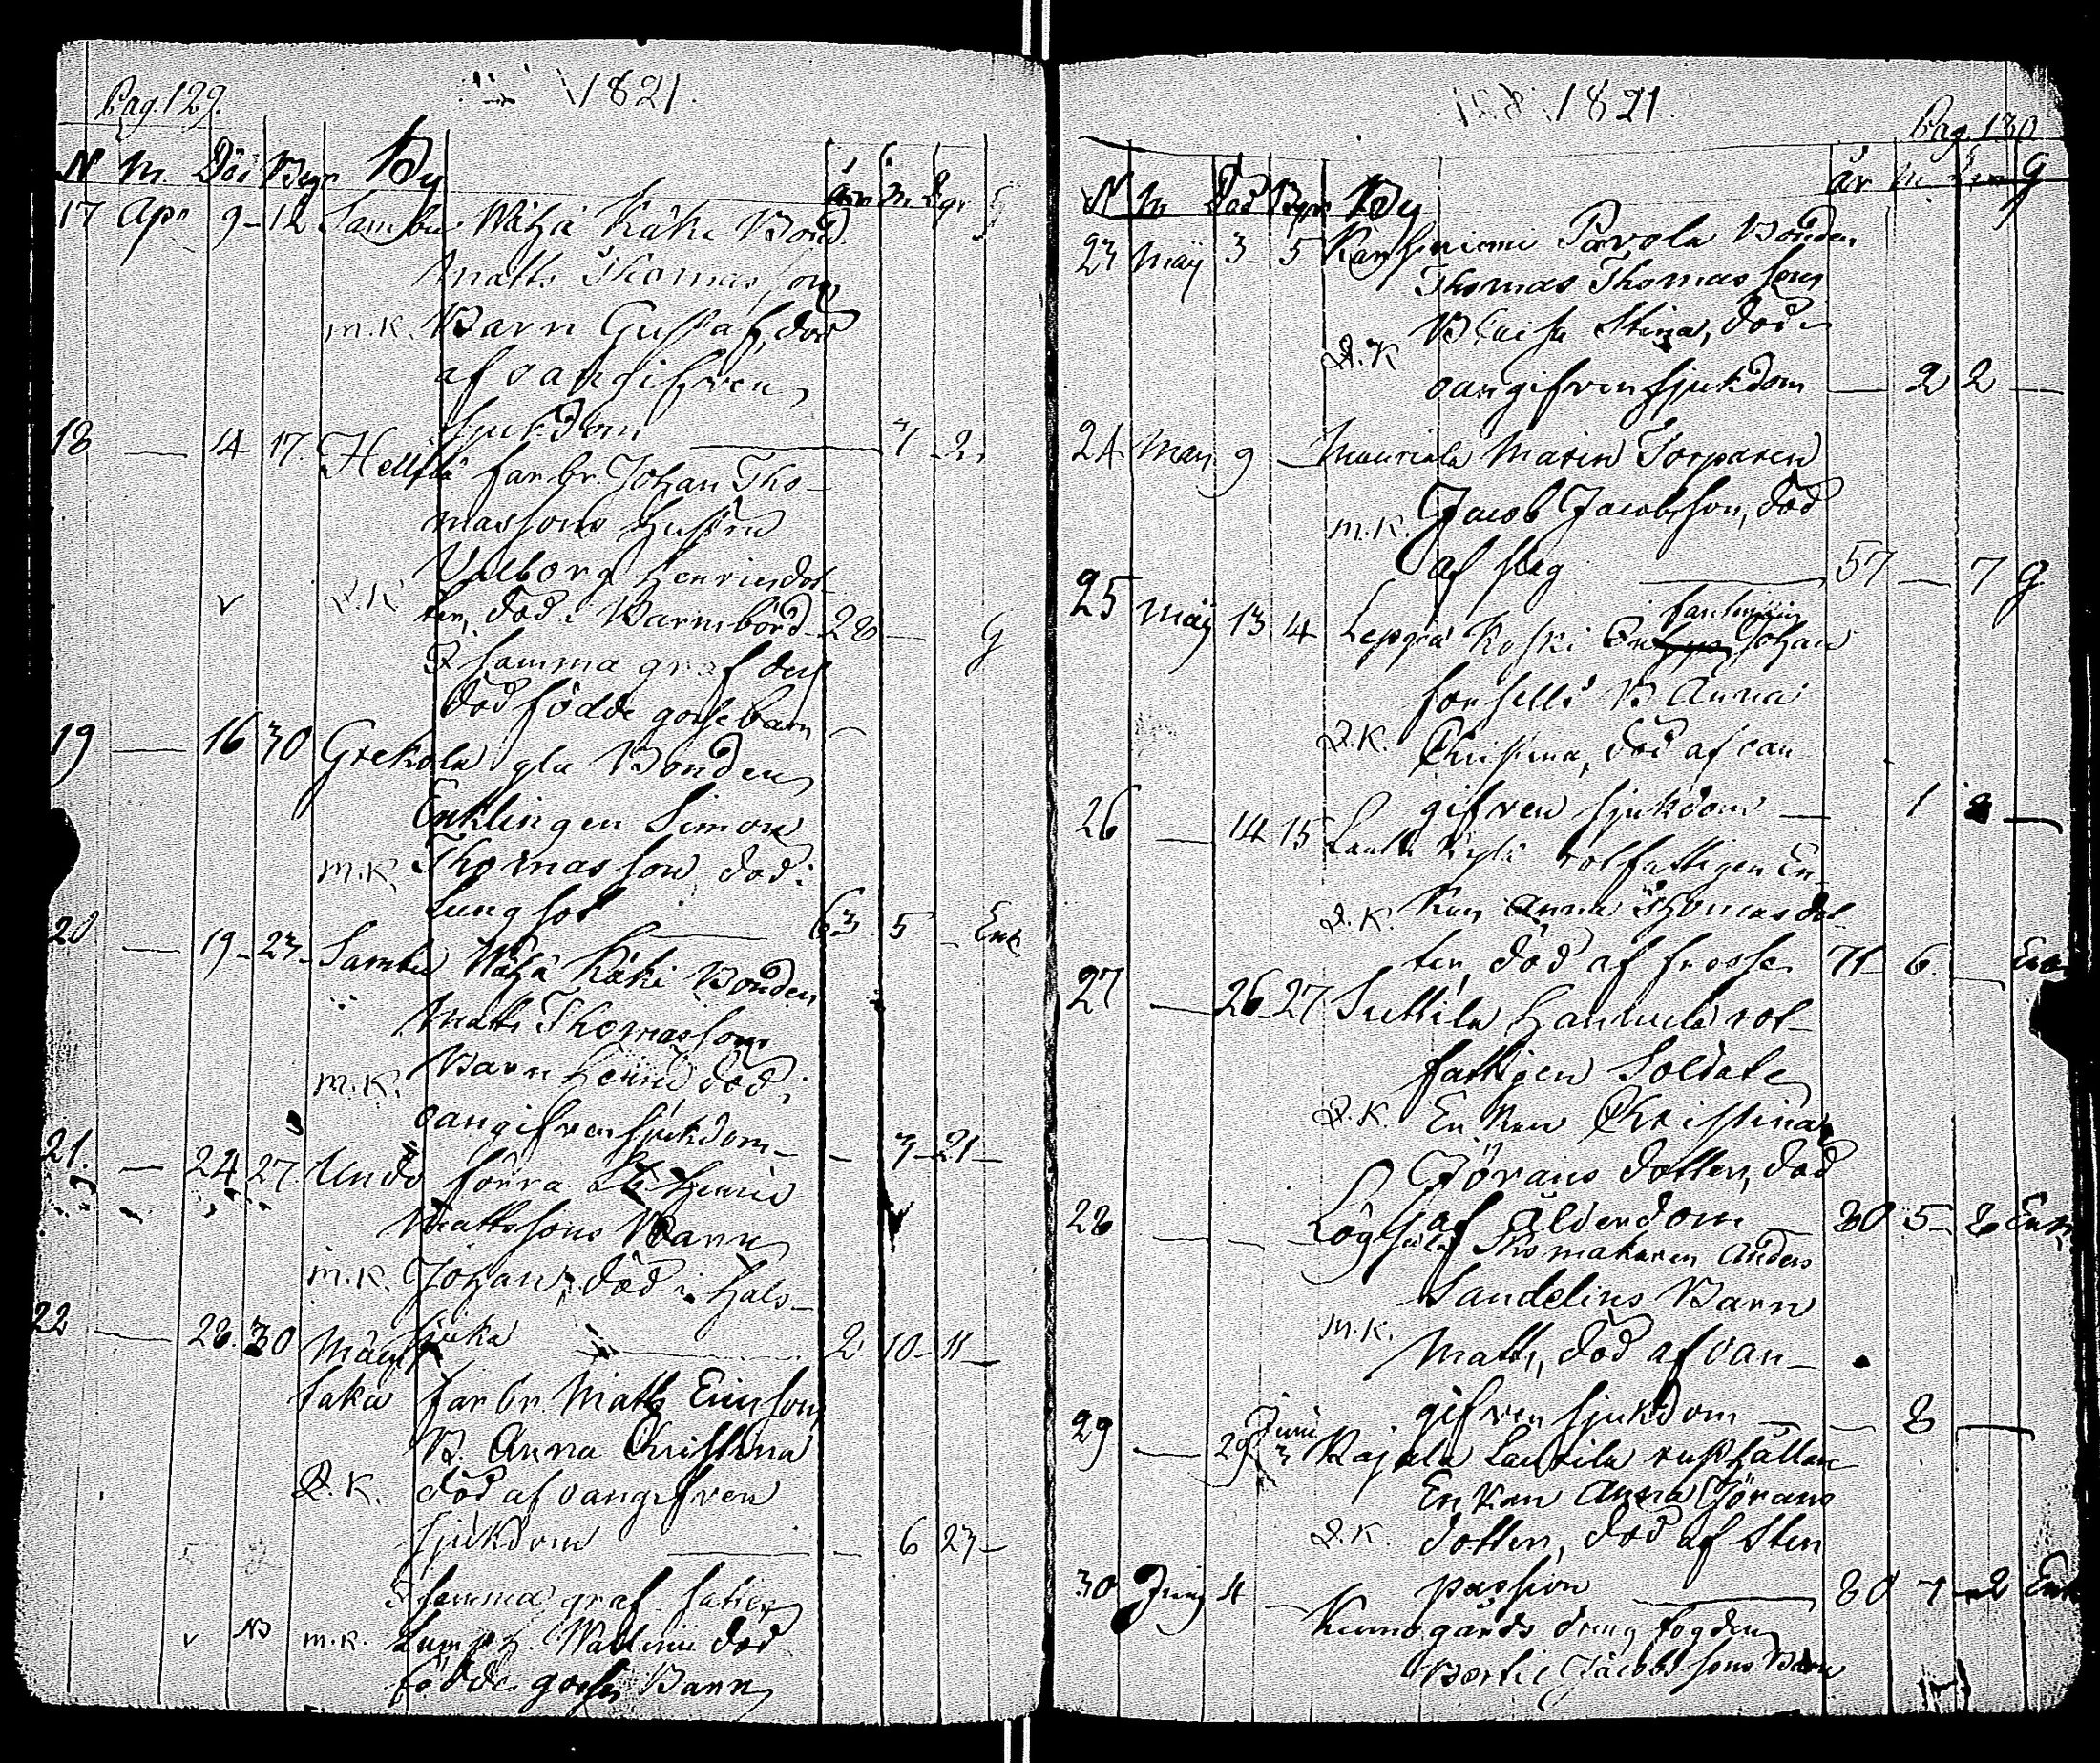 Pag. 129. 1821.
N M. Död Begr By år m dgr
17 Apr 9 - 12 Sambu Wähä Käki Bond.
Matts Thomassons
m.K. Barn Gustaf, död
af oangifven
sjukdom — 7 2.
18 — 14 17. Hellilä farbr. Johan Tho-
massons Hustru
Valborg Henricsdot
v Q.K ter, död i Barnsbörd - 28 — g
I samma graf des
dödfödde gosse barn —
19 — 16 30 Grekola gla Bonden
Enklingen Simon
m.K. Thomasson död i
Lungsot — 63. 5 — Enk.
20 — 19 - 23 - Sambu Wähä Käki Bonden
Matts Thomassons
m.K. Barn Henric död i
oangifven sjukdom — — 7 - 21 —
21. — 24 27. Undo förra Henric
Mattssons Barn
m.K. Johan, död i Hals-
sjuka — 2 10 - 11 —
22 — 28. 30
taka farbr. Matts Ericsons
B. Anna Christina
Q.K. död af oangifven
sjukdom — — 6 23 —
I samma graf
v NB m.K. död
födde gosse Barn
1821. Pag. 130
N M Död Begr By år m g
23 Maij 3 - 5 Karhuniemi Pavola Bonden
Thomas Thomassons
B Caisa Stina, död i
Q.K oangifven sjukdom — 2 2 —
24 Maij 9 — Mauriala Marin Torparen
m.K. Jacob Jacobsson, död
af slag — 57 — 7 g
25 Maij 13 4 Leppä Koski Johan
Forsells B Anna
Q.K. Christina, död af oan
gifven sjukdom — 1 2 —
26 — 14 15 Lautta Kylä rotfattigen En-
Q.K. kan Anna Thomasdot
ter, död af frossa 71 6 — Enk
27 — 26 - 27 Suttila Hannula rot-
fattigen Soldate
Q.K. Enkan Christina
Jörans dotter, död
af Ålderdom — 80 5 - 8 Enk
28 — — Skomakaren Anders
Sandelins Barn
m.K. Matts, död af oan-
gifven sjukdom — — 8 —
Junii
29 — 29 3 Rajala Laurila rusthållare
Enkan Anna Jörans
Q.K. dotter, död af Sten
passion — 80 7 - 2 Enk
30 Junij 4 — Kumogårds dräng fogden
Bertil Jacobssons Barn